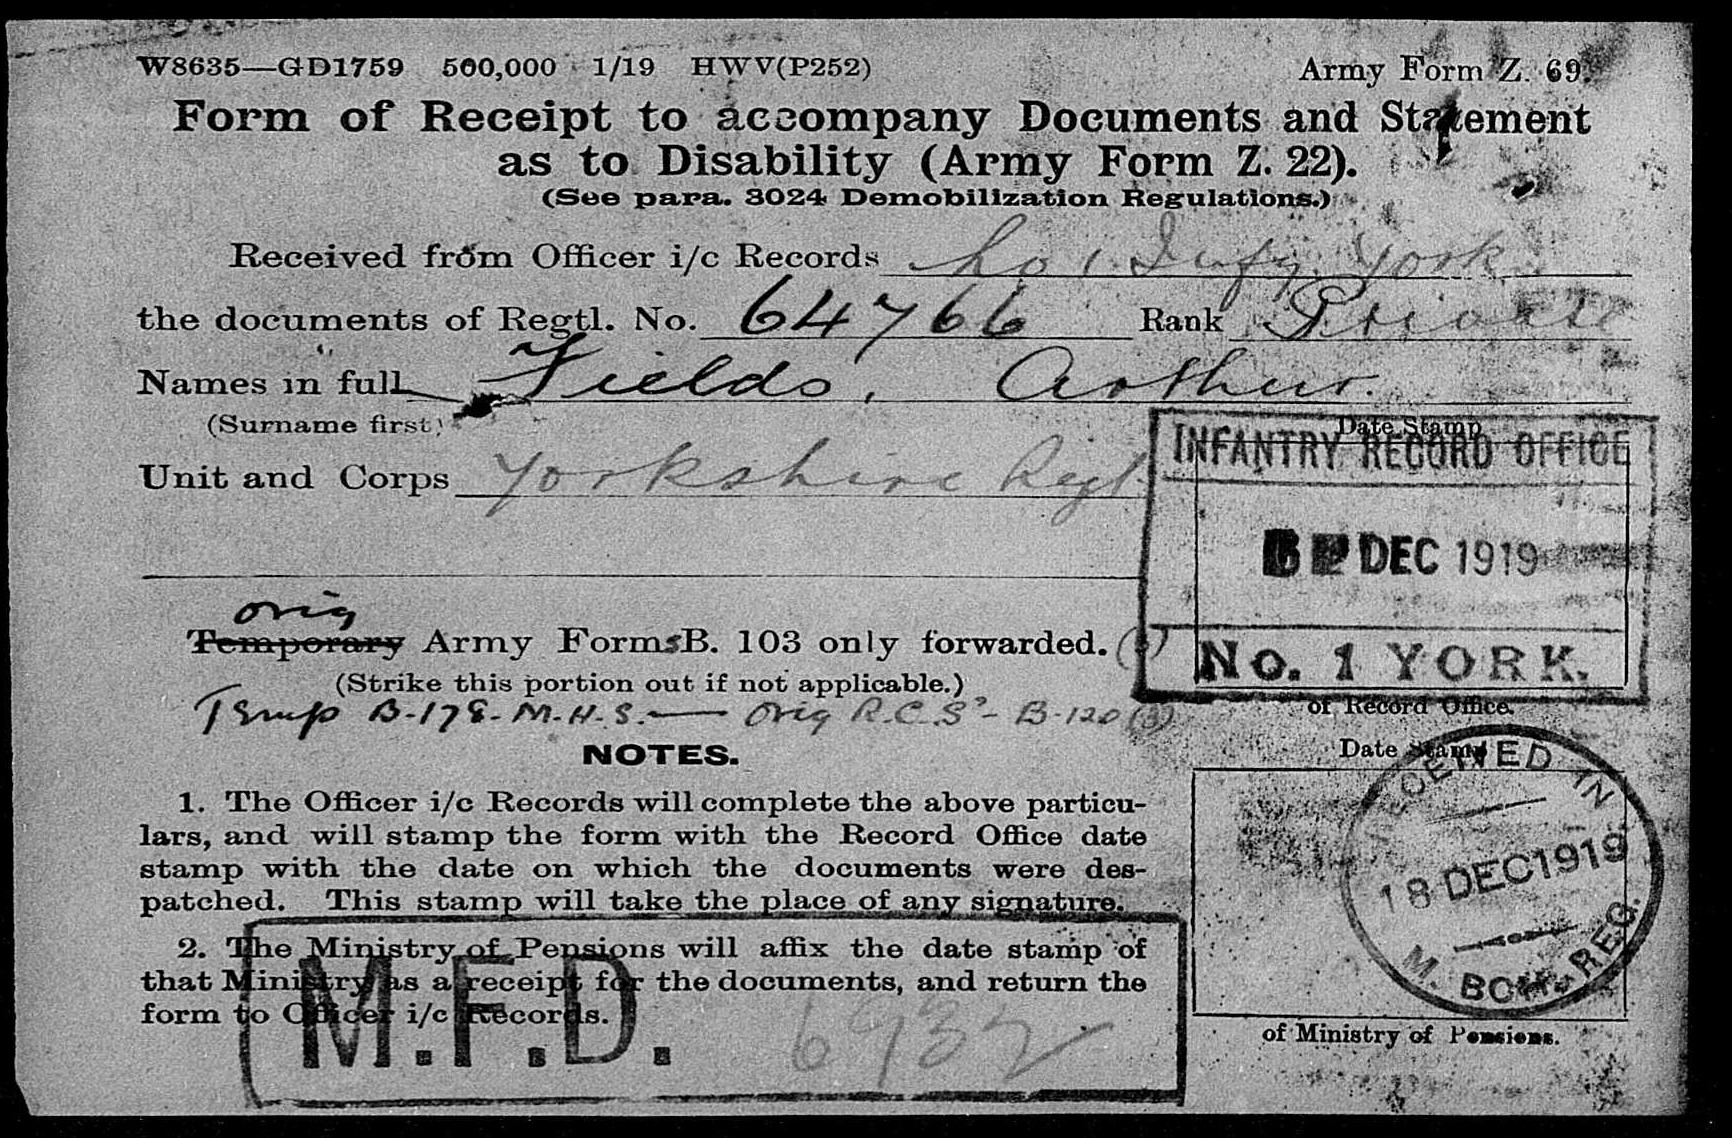 W8635—GD1759 500,000 1/19 HWV(P252) Army Form Z. 69.
Form of Receipt to accompany Documents and Statement
as to Disability (Army Form Z. 22).
(See para. 3024 Demobilization Regulations.)
Received from Officer i/c Records No 1. Infy. York
the documents of Regtl. No. 64766 Rank Private
Names in full Fields, Arthur.
(Surname first)
Unit and Corps Yorkshire Regt.
Date Stamp
INFANTRY RECORD OFFICE
DEC 1919
No. 1 YORK.
of Record Office.
orig
Temporary Army Forms B. 103 only forwarded.
(Strike this portion out if not applicable.)
Temp B-178. M.H.S. — Orig R.C.S' - B-120 (3)
NOTES.
1. The Officer i/c Records will complete the above particu-
lars, and will stamp the form with the Record Office date
stamp with the date on which the documents were des-
patched. This stamp will take the place of any signature.
2. The Ministry of Pensions will affix the date stamp of
that Ministry as a receipt for the documents, and return the
form to Officer i/c Records.
M.F.D. 6932
Date Stamp
RECEIVED IN
18 DEC 1919
M. BCH. REG.
of Ministry of Pensions.